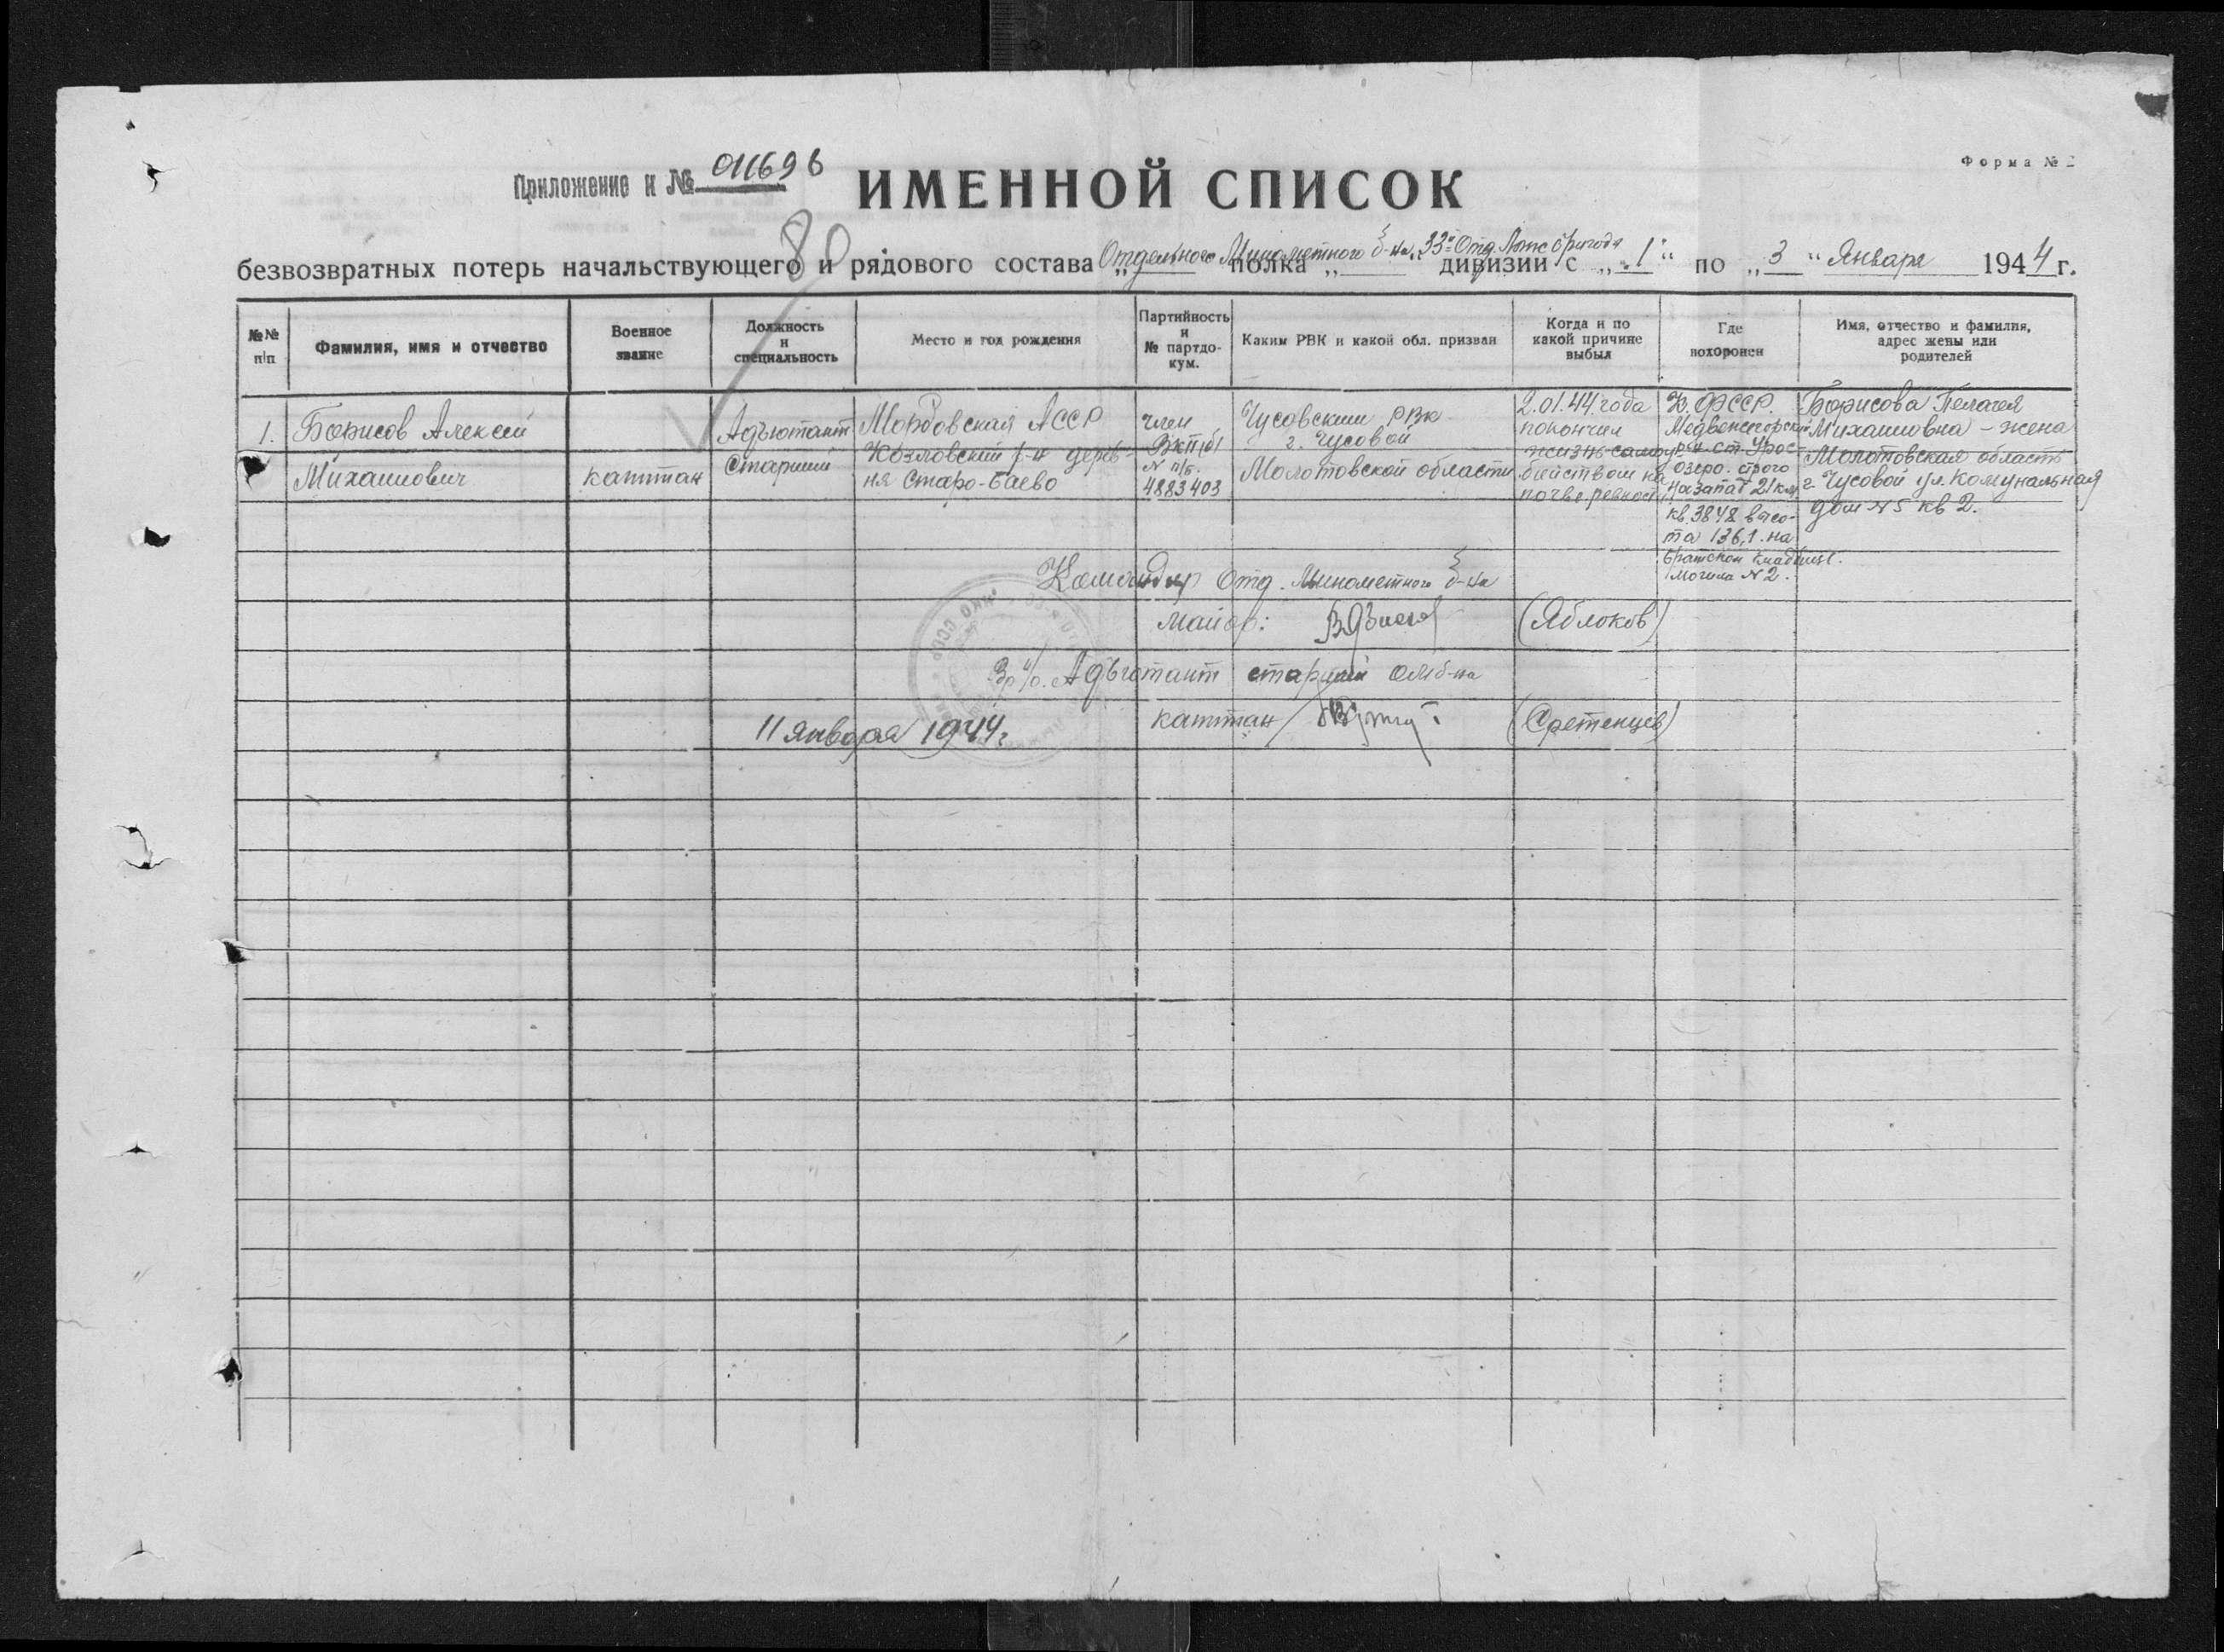 Форма № 2
Приложение к № 011696
ИМЕННОЙ СПИСОК
80
безвозвратных потерь начальствующего и рядового состава Отдельного Минометного б-на полка „ 33й Отд. Лыж бригада дивизии с „ 1 “ по „ 3 “ Января 1944 г.
№№ п/п
Фамилия, имя и отчество
Военное звание
Должность и специальность
Место и год рождения
Партийность и № партдокум.
Каким РВК и какой обл. призван
Когда и по какой причине выбыл
Где похоронен
Имя, отчество и фамилия, адрес жены или родителей
1.
Борисов Алексей
Михайлович
капитан
Адъютант
Старший
Мордовская АССР
Козловский р-н дерев-
ня Старо-Баево
член
ВКП(б)
N п/б.
4883403
Чусовским РВК
г. Чусовой
Молотовской области
2.01.44 года
покончил
жизнь само-
убийством на
почве ревност
К. ФССР.
Медвежегорский
р-н ст. Урос-
озеро. строго
на запад 21 км
кв. 3848 высо-
та 136,1. на
братском кладбище.
Могила N 2.
Борисова Пелагея
Михайловна - жена
Молотовская область
г. Чусовой ул. Комунальная
дом N 5 кв 2.
Командир Отд. Минометного б-на
майор: (Яблоков)
Адъютант старший ОМб-на
капитан (Сретенцев)
11 января 1944 г.